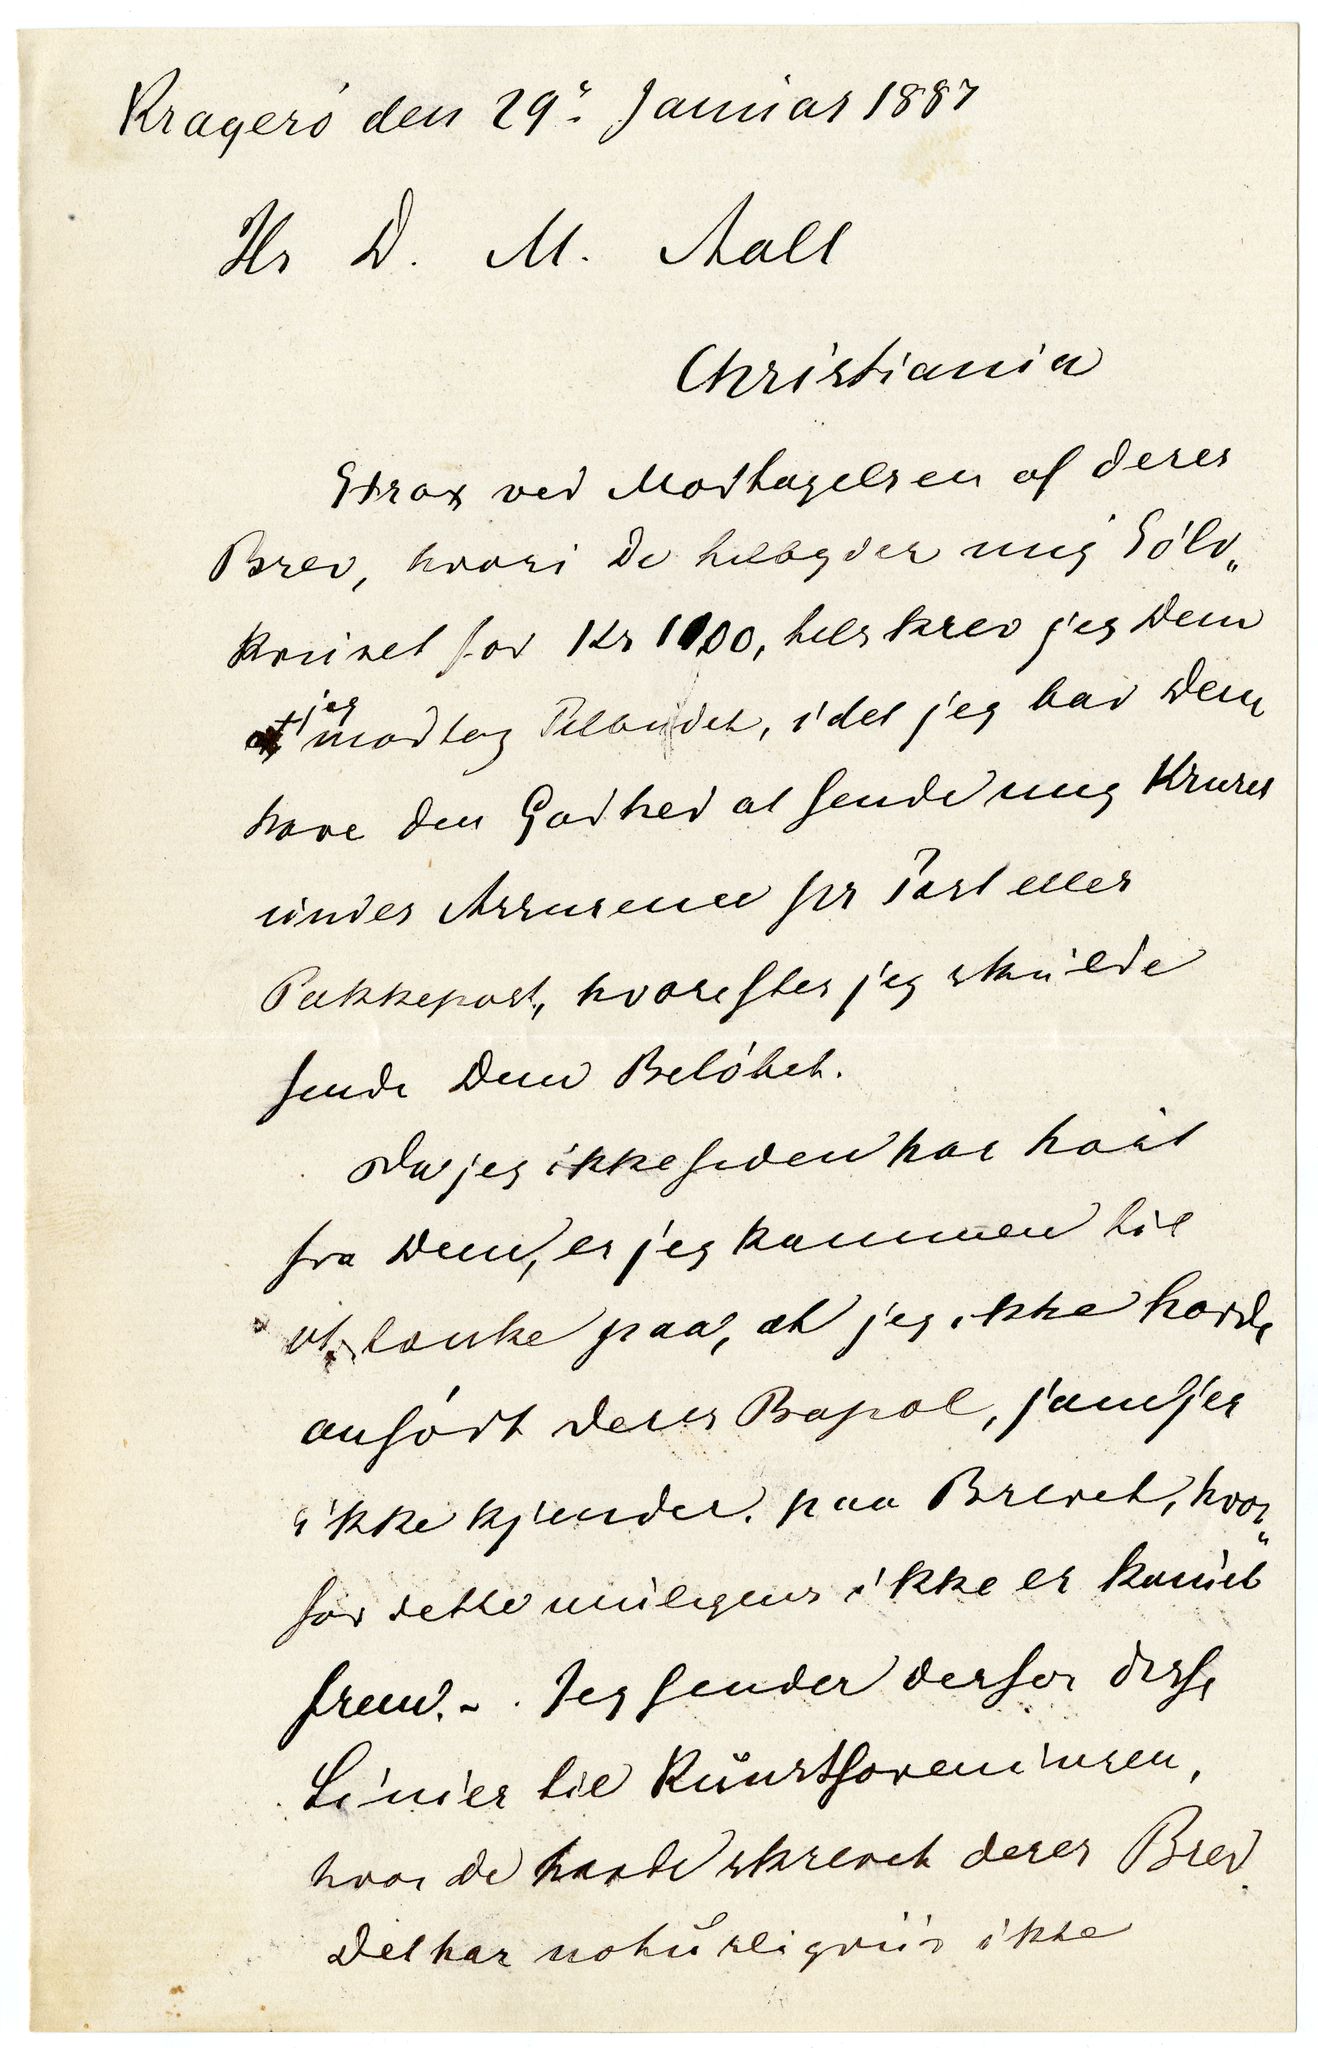 Kragerö den 29de Januar 1887
Hr D. M. Aall
Christiania
Strax ved Modtagelsen af deres
Brev, hvori De tilbyder mig Sölv„
kruset for Kr 1000, tilskrev jeg Dem
at jeg modtog Tilbudet, idet jeg bad Dem
have den Godhed at sende mig Kruset
under Assurence pr Post eller
Pakkepost, hvorefter jeg skulde
sende Dem Belöbet.
Da jeg ikke siden har hört
fra Dem, er jeg kommen til
at tænke paa, at jeg ikke havde
anfört deres Bopæl, som jeg
ikke kjender. paa Brevet, hvor„
for dette muligens ikke er kommet
frem. - Jeg sender derfor disse
Linier til Kunstforeningen,
hvor de havde skrevet deres Brev
Det har naturligviis ikke